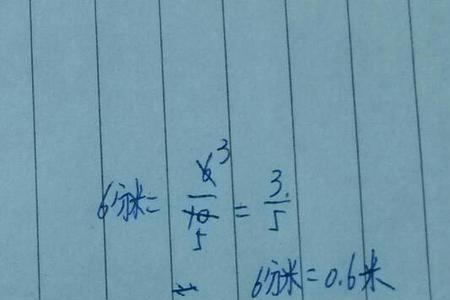 6分米=6/10=3/5
6分米=0.6米